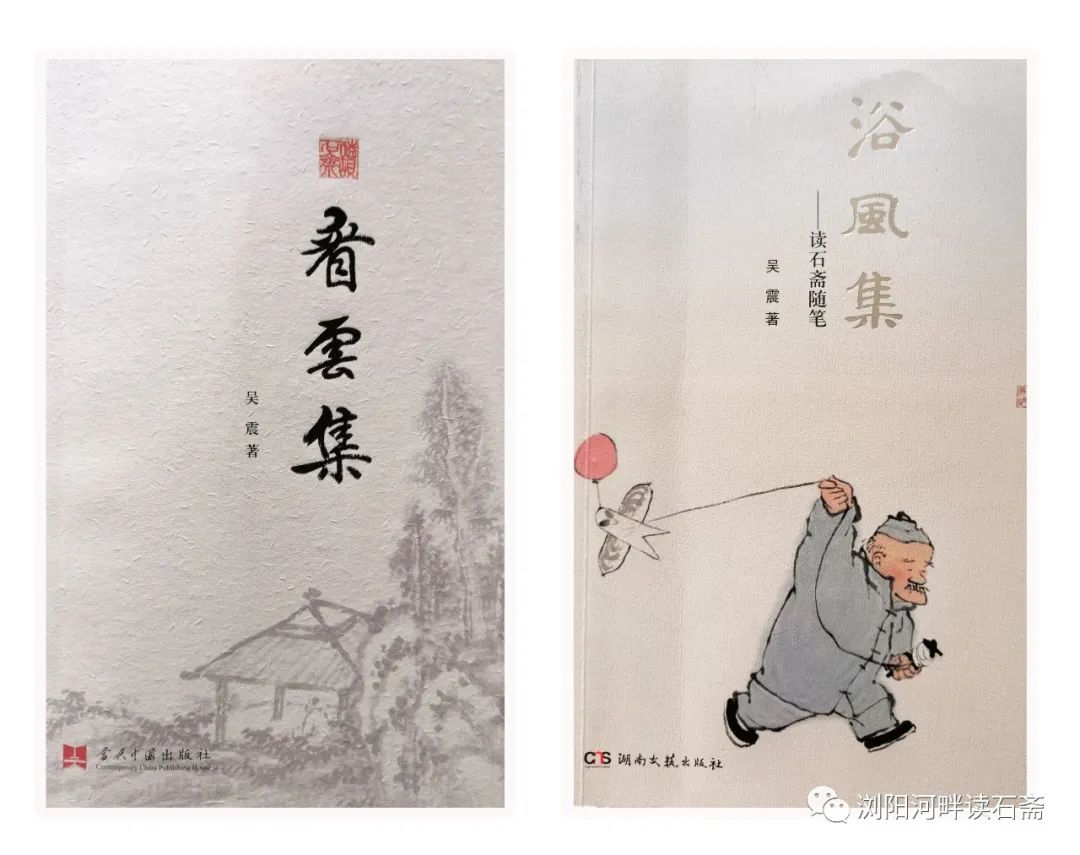 看雲集
吴震著
当代中国出版社
Contemporary China Publishing House
浴風集
——读石斋随笔
吴震著
CS
湖南文艺出版社
浏阳河畔读石斋